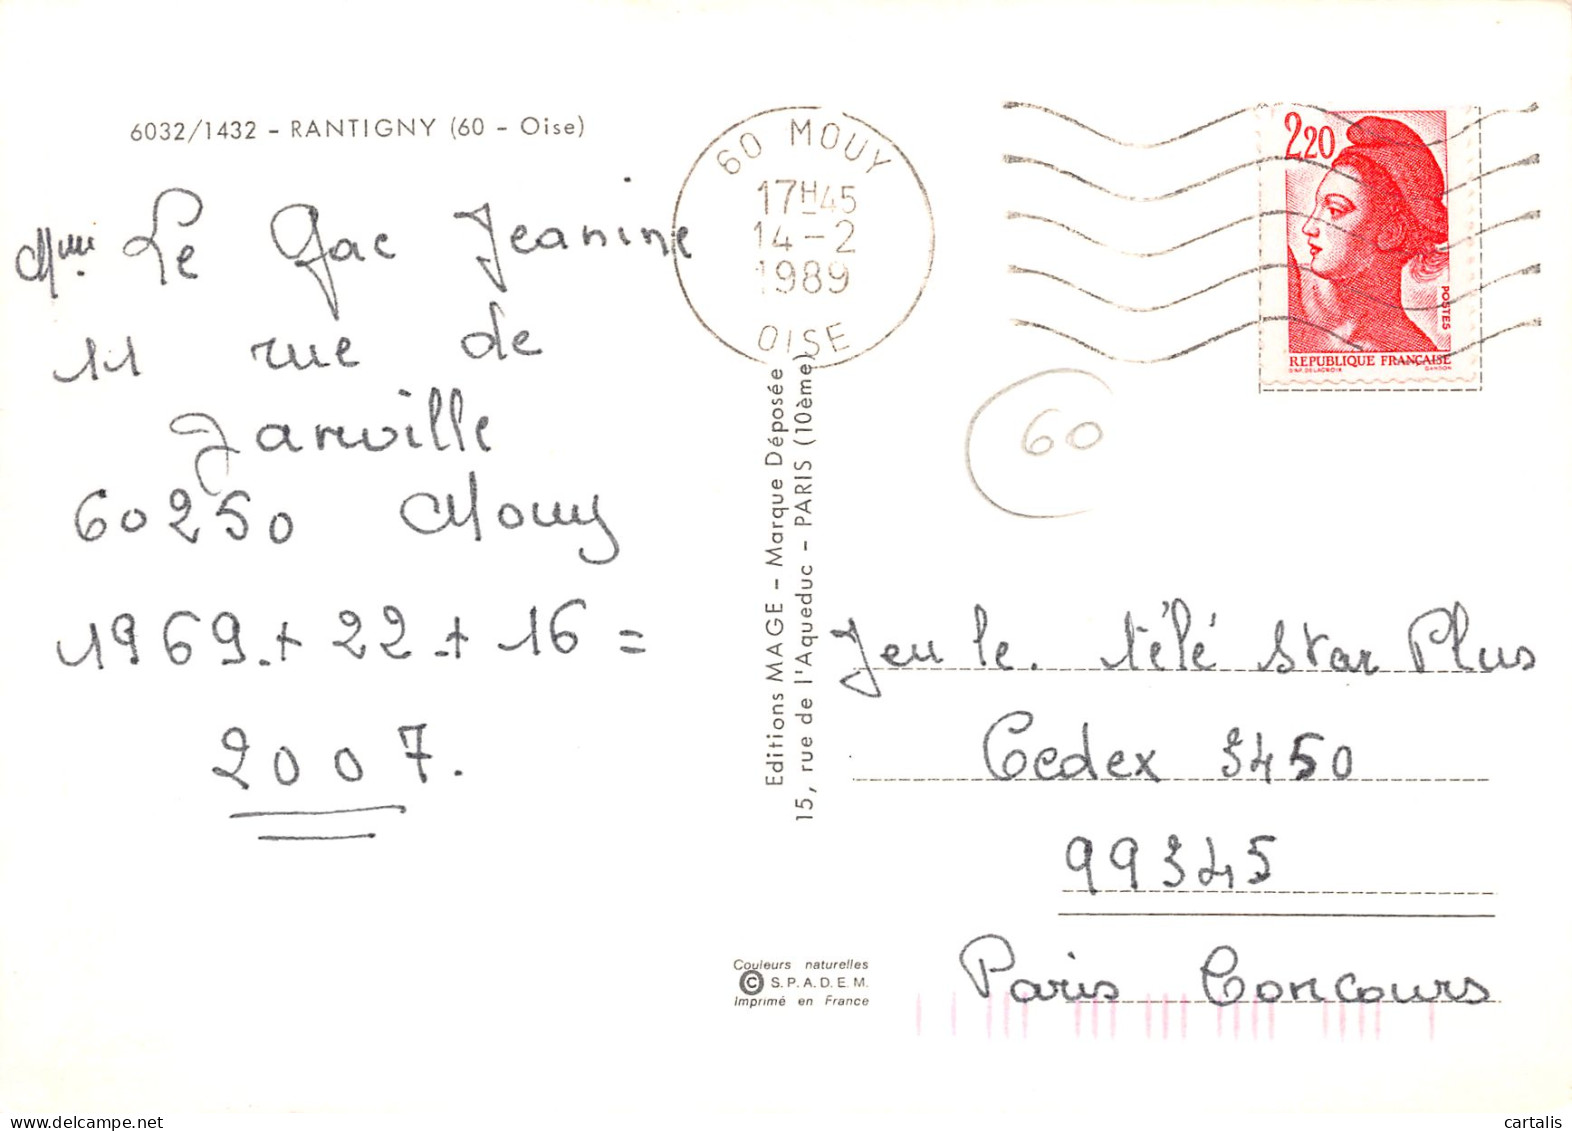 6032/1432 - RANTIGNY (60 - Oise)
Mme Le Gac Jeanine
11 rue de
Janville
60250 Mouy
1969 + 22 + 16 =
2007.
60 MOUY
17H45
14-2
1989
OISE
2,20
POSTES
REPUBLIQUE FRANÇAISE
D'AP. DELACROIX GANDON
60
Editions MAGE - Marque Déposée
15, rue de l'Aqueduc - PARIS (10ème)
Jeu le télé Star Plus
Cedex 3450
99345
Paris Concours
Couleurs naturelles
© S.P.A.D.E.M.
Imprimé en France
cartalis